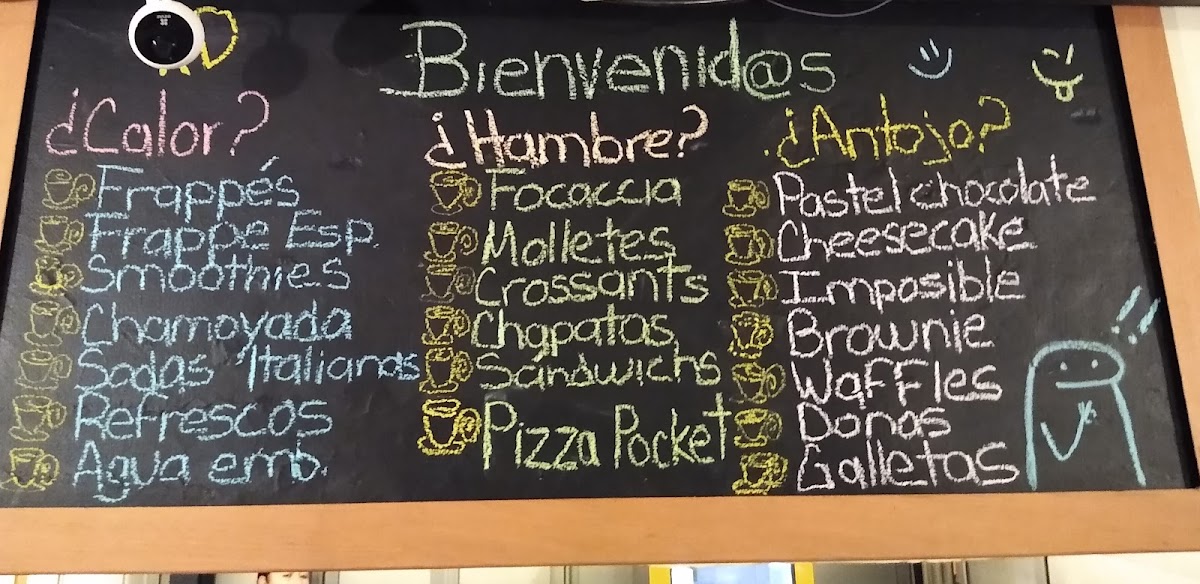 Bienvenid@s
¿Calor?
Frappés
Frappé Esp.
Smoothies
Chamoyada
Sodas Italianas
Refrescos
Agua emb.
¿Hambre?
Focaccia
Molletes
Crossants
Chapatas
Sándwichs
Pizza Pocket
¿Antojo?
Pastel chocolate
Cheesecake
Imposible
Brownie
Waffles
Donas
Galletas